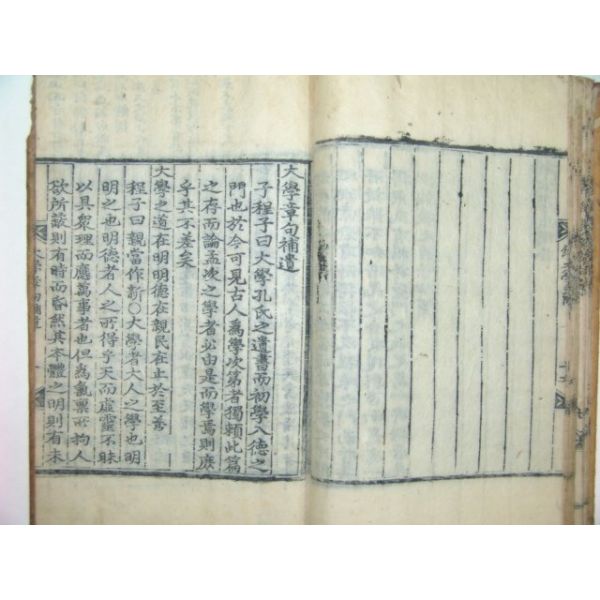 大學章句補遺
子程子曰大學孔氏之遺書而初學入德之
門也於今可見古人爲學次第者獨賴此篇
之存而論孟次之學者必由是而學焉則庶
乎其不差矣
大學之道在明明德在親民在止於至善
程子曰親當作新○大學者大人之學也明
明之也明德者人之所得乎天而虛靈不昧
以具衆理而應萬事者也但為氣禀所拘人
欲所蔽則有時而昏然其本體之明則有未
大學章句補遺